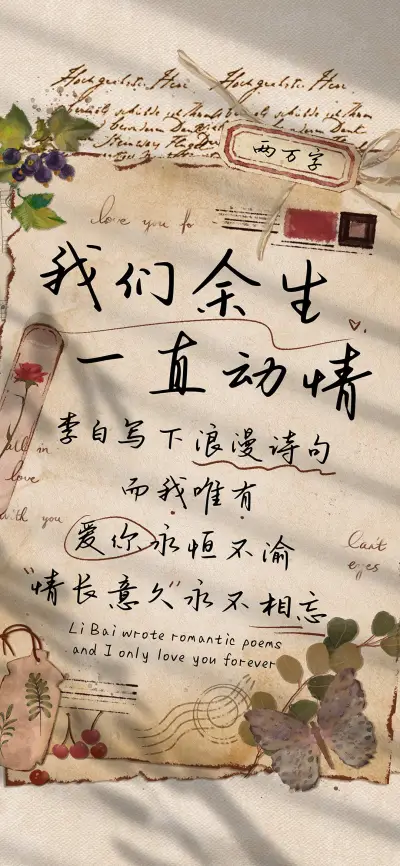 两万字
love you fo
我们余生
一直动情
李白写下浪漫诗句
而我唯有
爱你永恒不渝
"情长意久"永不相忘
Li Bai wrote romantic poems
and I only love you forever
in
love
with you
eyes